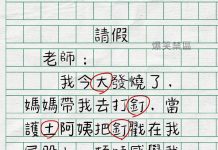 請假
爆笑禁區
老師：
我今大發燒了，
媽媽帶我去打釘，當
護土阿姨把釘戳在我